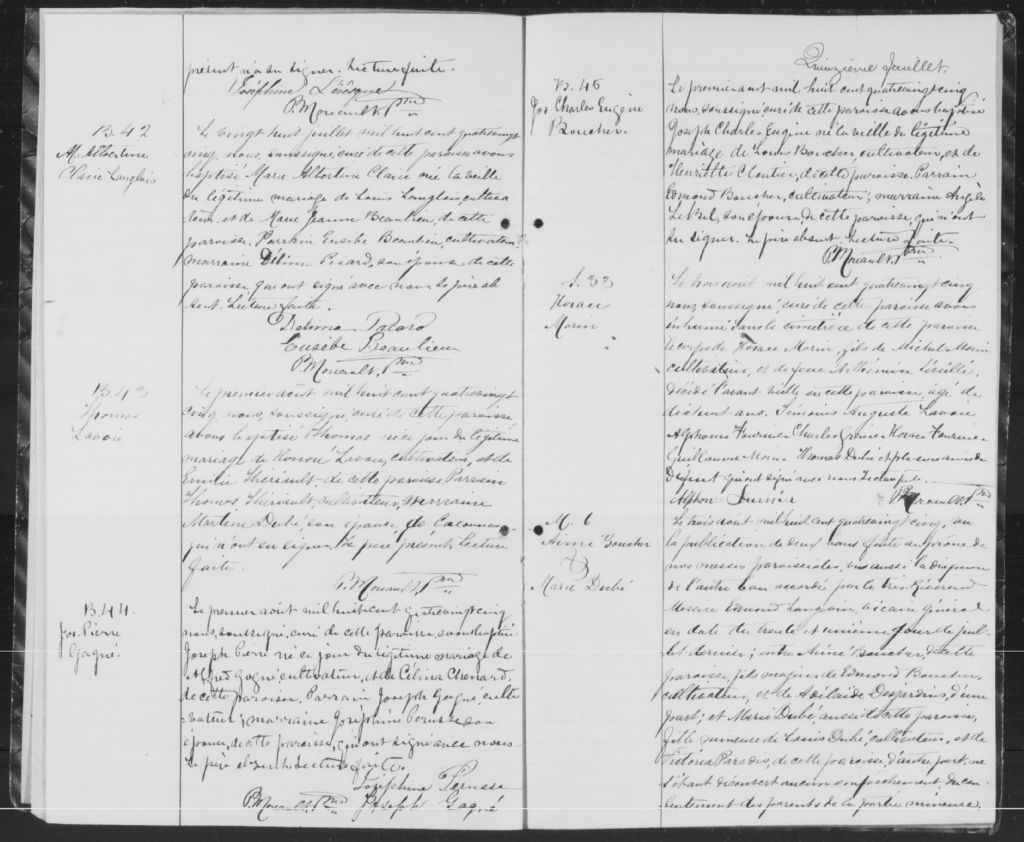 présent n'a su signer. Lecture faite.
Joséphine Lévesque
P. Morault, Ptre
B. 42
M. Albertine
Claire Langlois
Le vingt huit juillet mil huit cent quatrevingt
cinq, nous, soussigné, curé de cette paroisse avons
baptisé Marie Albertine Claire née la veille
du légitime mariage de Louis Langlois, cultiva
teur, et de Marie Jeanne Beaulieu, de cette
paroisse. Parrain Eusèbe Beaulieu, cultivateur,
marraine Délima Picard, son épouse de cette
paroisse qui ont signé avec nous. Le père ab
sent. Lecture faite.
Delima Picard
Eusèbe Beaulieu
P. Morault, Ptre
B. 43
Thomas
Lavoie
Le premier août mil huit cent quatrevingt
cinq, nous, soussigné, curé de cette paroisse,
avons baptisé Thomas né ce jour du légitime
mariage de Honoré Lavoie, cultivateur, et de
Emélie Thériault, de cette paroisse Parrain
Thomas Thériault, cultivateur; marraine
Martine Dubé, son épouse, de Cacouna
qui n'ont su signer. Le père présent. Lecture
faite.
P. Morault, Ptre
B. 44.
Jos. Pierre
Gagné.
Le premier août mil huit cent quatrevingt cinq
nous, soussigné, curé de cette paroisse, avons baptisé
Joseph Pierre né ce jour du légitime mariage de
Alfred Gagné cultivateur, et de Célina Chenard,
de cette paroisse. Parrain Joseph Gagné culti
-vateur; marraine Joséphine Perusse, son
épouse, de cette paroisse, qui ont signé avec nous.
Le père absent. Lecture faite.
Joséphine Perusse
P. Morault, Ptre Joseph Gagné
Quinzième feuillet.
B. 45
Jos Charles Eugène
Boucher.
Le premier août mil huit cent quatrevingt cinq
nous, soussigné, curé de cette paroisse avons baptisé
Joseph Charles Eugène né la veille du légitime
mariage de Louis Boucher, cultivateur, et de
Henriette Cloutier, de cette paroisse. Parrain
Edmond Boucher, cultivateur; marraine Angèle
LeBel, son épouse, de cette paroisse, qui n'ont
su signer. Le père absent. Lecture faite.
P. Morault, Ptre
S. 33
Horace
Morin
Le trois août mil huit cent quatrevingt cinq
nous, soussigné, curé de cette paroisse avons
inhumé dans le cimetière de cette paroisse
le corps de Horace Morin, fils de Michel Morin
cultivateur, et de feue Arthémise Léveillé,
décédé l'avant-veille en cette paroisse, âgé de
dixhuit ans. Témoins Auguste Lavoie
Alphonse Fournier Charles Grenier Horace Fournier
Guillaume Morin Thomas Dubé et plusieurs amis du
Défunt qui ont signé avec nous. Lecture faite.
Alphon P. Morault, Ptre
M. 6
Aimé Boucher
&
Marie Dubé
Le trois août mil huit cent quatrevingt cinq, vu
la publication de deux bans faite au prône de
nos messes paroissiales, vu aussi la dispense
de l'autre ban accordée par le très Révérend
Messire Edmond Langevin, vicaire général
en date du trente et unième jour de juil-
let dernier; entre Aimé Boucher, de cette
paroisse, fils majeur de Edmond Boucher,
cultivateur, et de Adélaide Desjardins, d'une
part; et Marie Dubé aussi de cette paroisse,
fille mineure de Louis Dubé, cultivateur, et de
Victoria Paradis, de cette paroisse, d'autre part; ne
s'étant découvert aucun empêchement, du con-
sentement des parents de la partie mineure,